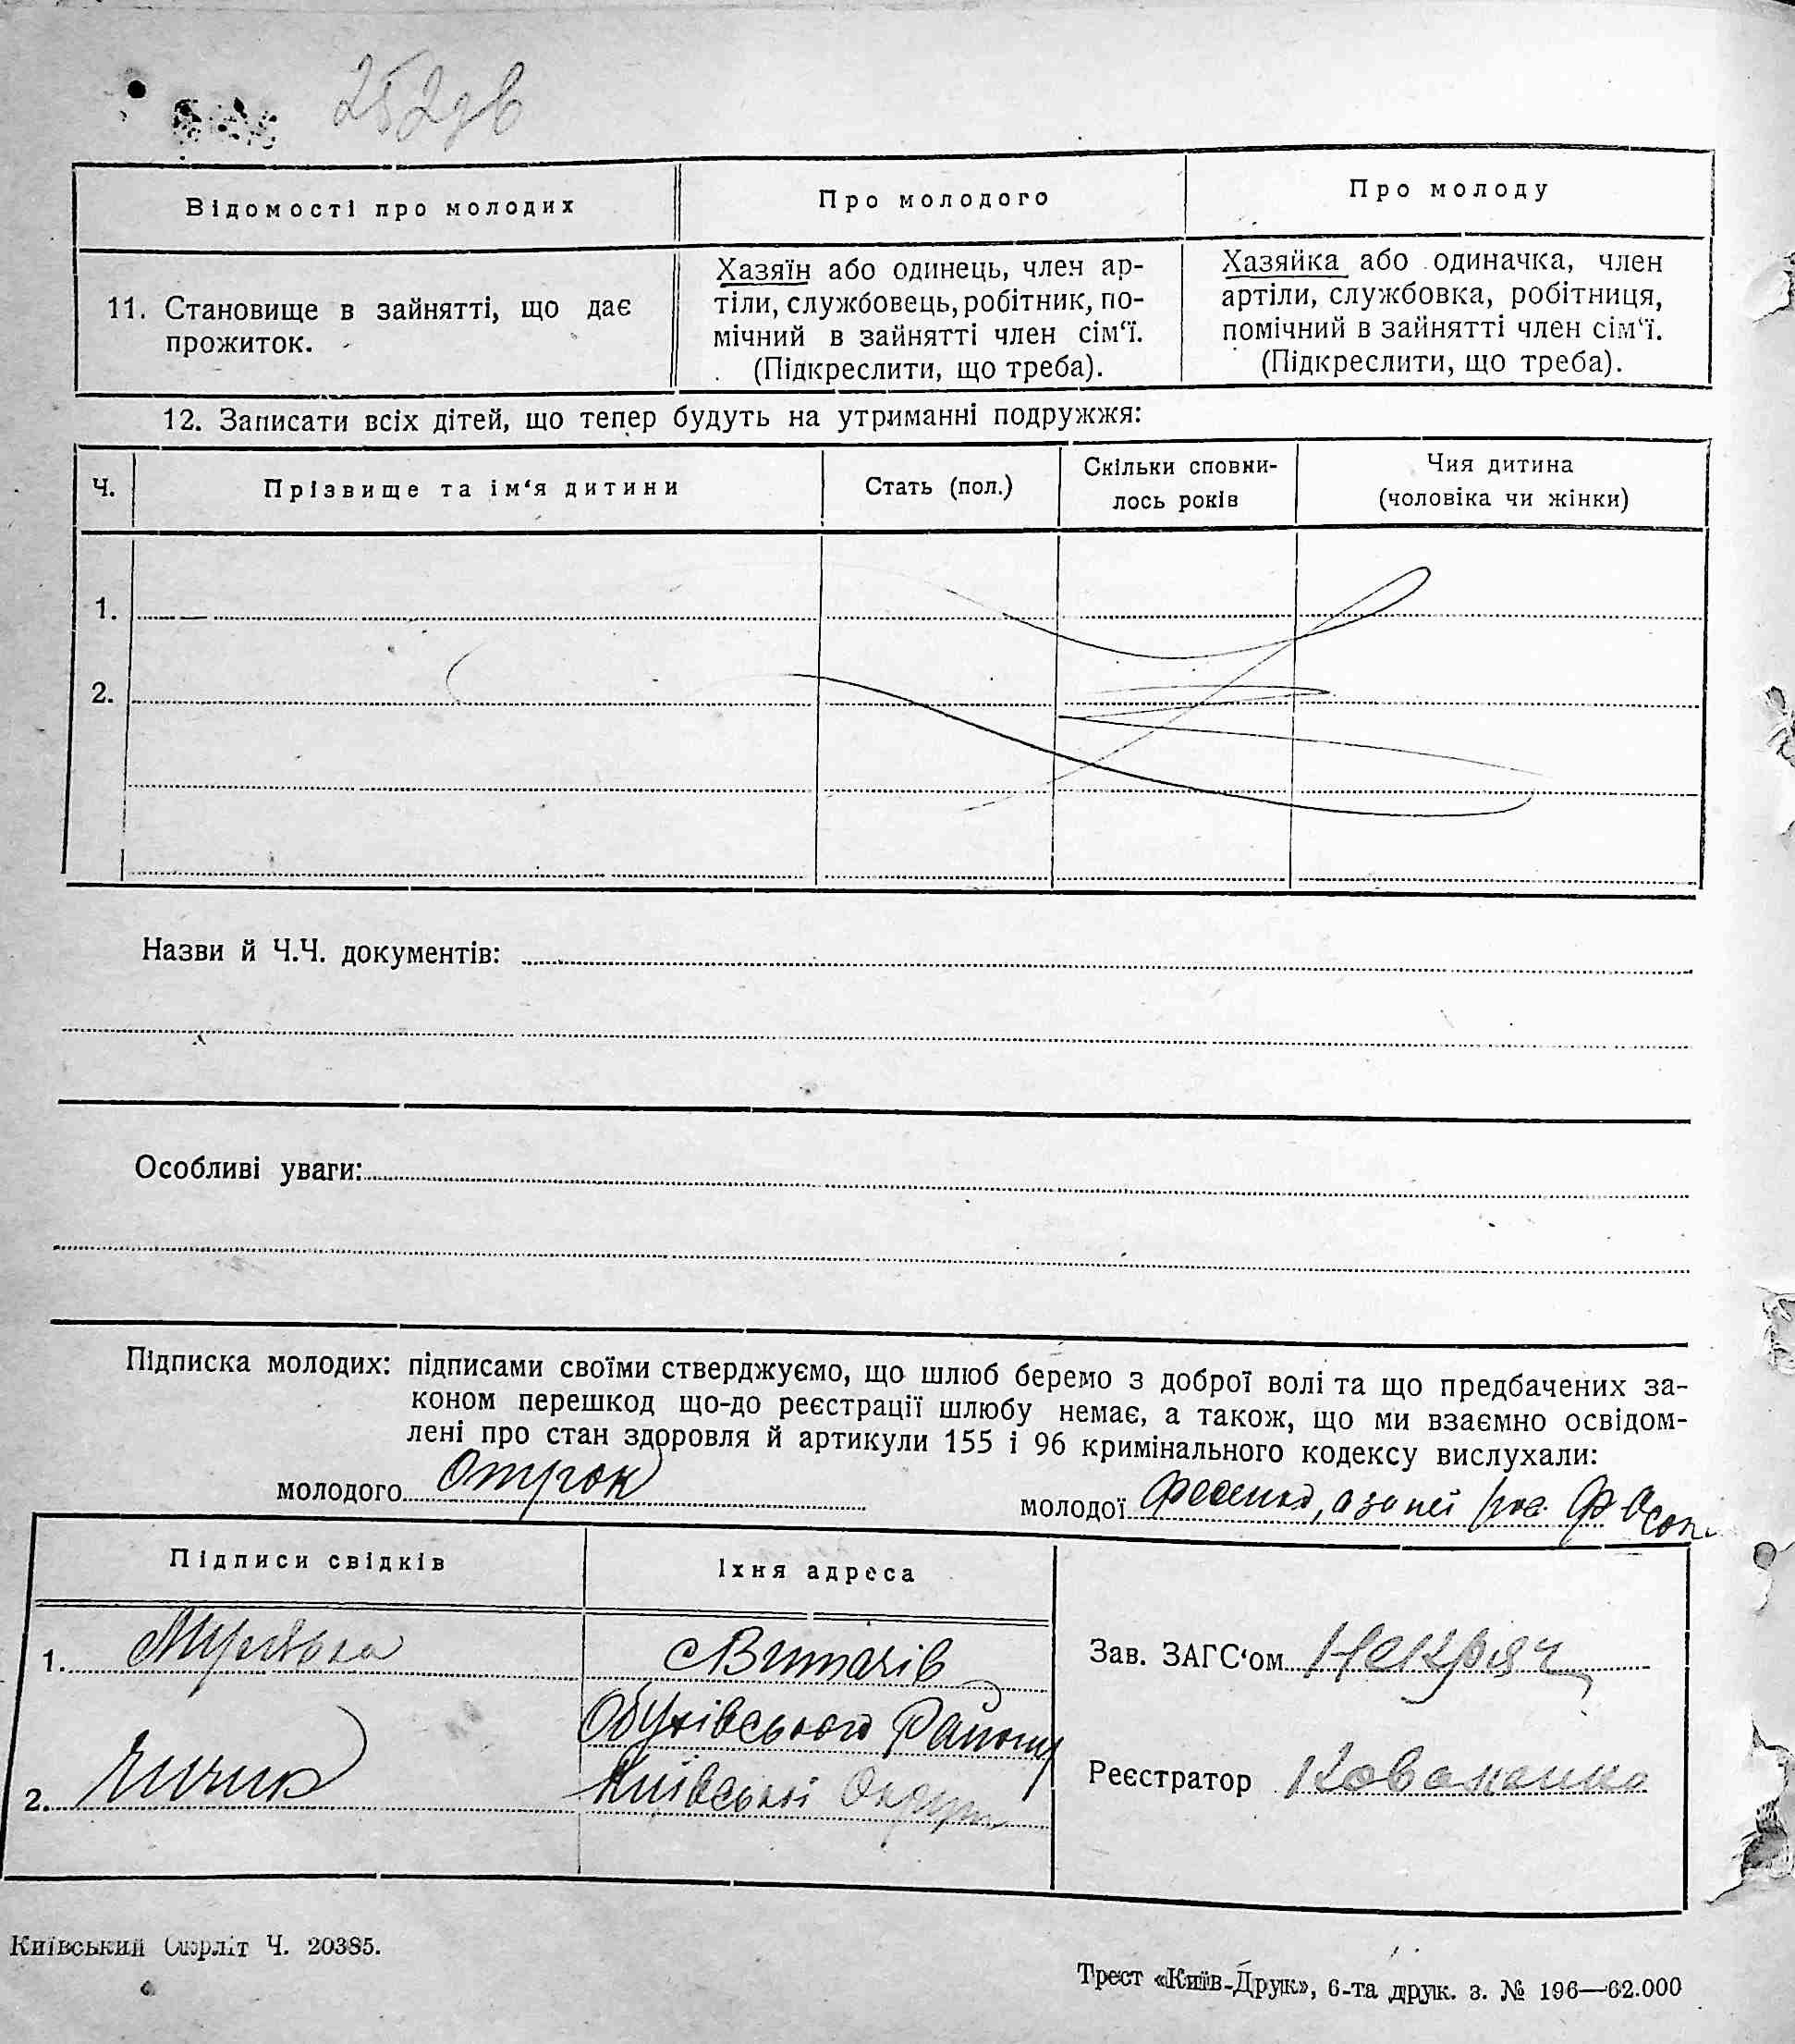 252 зв
Відомості про молодих
Про молодого
Про молоду
11. Становище в зайнятті, що дає
прожиток.
Хазяїн або одинець, член ар-
тіли, службовець, робітник, по-
мічний в зайнятті член сім‘ї.
(Підкреслити, що треба).
Хазяйка або одиначка, член
артіли, службовка, робітниця,
помічний в зайнятті член сім‘ї.
(Підкреслити, що треба).
12. Записати всіх дітей, що тепер будуть на утриманні подружжя:
Ч.
Прізвище та ім‘я дитини
Стать (пол.)
Скільки сповни-
лось років
Чия дитина
(чоловіка чи жінки)
1.
2.
Назви й Ч.Ч. документів:
Особливі уваги:
Підписка молодих: підписами своїми стверджуємо, що шлюб беремо з доброї волі та що предбачених за-
коном перешкод що-до реєстрації шлюбу немає, а також, що ми взаємно освідом-
лені про стан здоровля й артикули 155 і 96 кримінального кодексу вислухали:
молодого Отрок
молодої Фесенко, а за неї
Підписи свідків
Їхня адреса
1.
с Витачів
Обухівського Району
Київської Округи
2.
Зав. ЗАГС‘ом Некряч
Реєстратор Коваленко
Київський Окрліт Ч. 20385.
Трест «Київ-Друк», 6-та друк. з. № 196—62.000